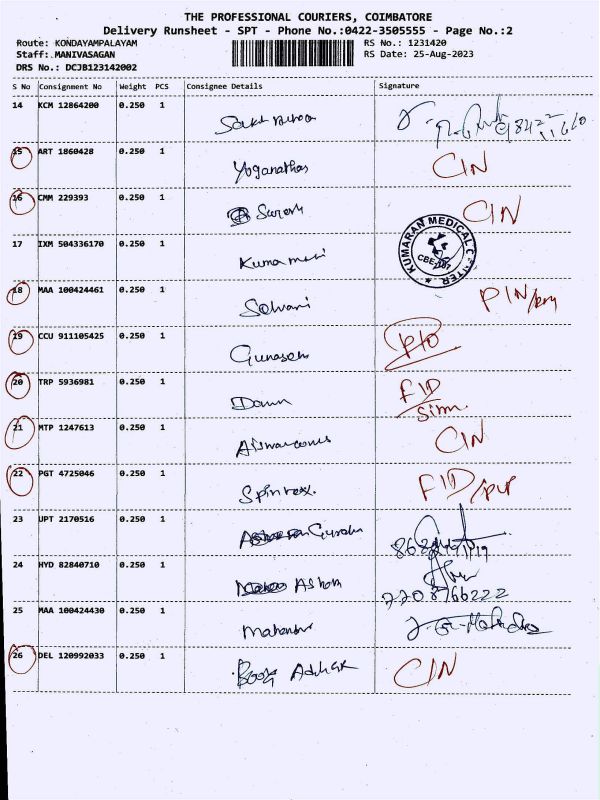 THE PROFESSIONAL COURIERS, COIMBATORE
Delivery Runsheet - SPT - Phone No.:0422-3505555 - Page No.:2
Route: KONDAYAMPALAYAM RS No.: 1231420
Staff: MANIVASAGAN RS Date: 25-Aug-2023
DRS No.: DCJB123142002
S No Consignment No Weight PCS Consignee Details Signature
14 KCM 12864200 0.250 1
15 ART 1860428 0.250 1 Yoganathan CIN
16 CMM 229393 0.250 1 Suresh CIN
17 IXM 504336170 0.250 1 Kumaran KUMARAN MEDICAL CENTER
18 MAA 100424461 0.250 1 Selvani PIN
19 CCU 911105425 0.250 1 Gunasek
20 TRP 5936981 0.250 1 FID
21 MTP 1247613 0.250 1 CIN
22 PGT 4725046 0.250 1 Spintex. FID
23 UPT 2170516 0.250 1
24 HYD 82840710 0.250 1 Ashok
7708766222
25 MAA 100424430 0.250 1
26 DEL 120992033 0.250 1 CIN